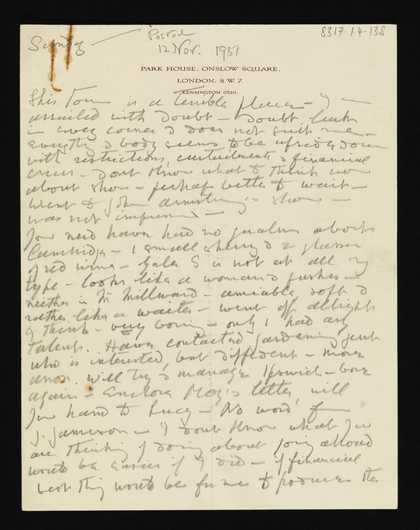 8317.1.4.138
Sunday
Posted
12 Nov. 1951
PARK HOUSE, ONSLOW SQUARE,
LONDON. S.W. 7.
KENSINGTON
This Town is a terrible place - I
assailed with doubt - Doubt lurks
in every corner & does not suit me -
Everything & body seems to be
with restrictions, curtailments & financial
crises - Dont know what to think now
about show - perhaps better to wait -
went to John show -
was not impressed -
You need have had no qualms about
Cambridge - I small sherry & 2 glasses
of red wine - S is not at all my
type - looks like a womans -
neither is Mr Millward - amiable soft &
rather like a waiter - went off
I think - very boring - only I had any
talent. Have contacted gardening gent
who is interested, but diffident - more
anon. Will try & manage Ipswich -
again - Enclose letter will
you hand to Lucy - No word of
J. Jameson - I dont know what you
are thinking of doing about going abroad
would be easier if I did - if financial
best thing would be for me to produce the